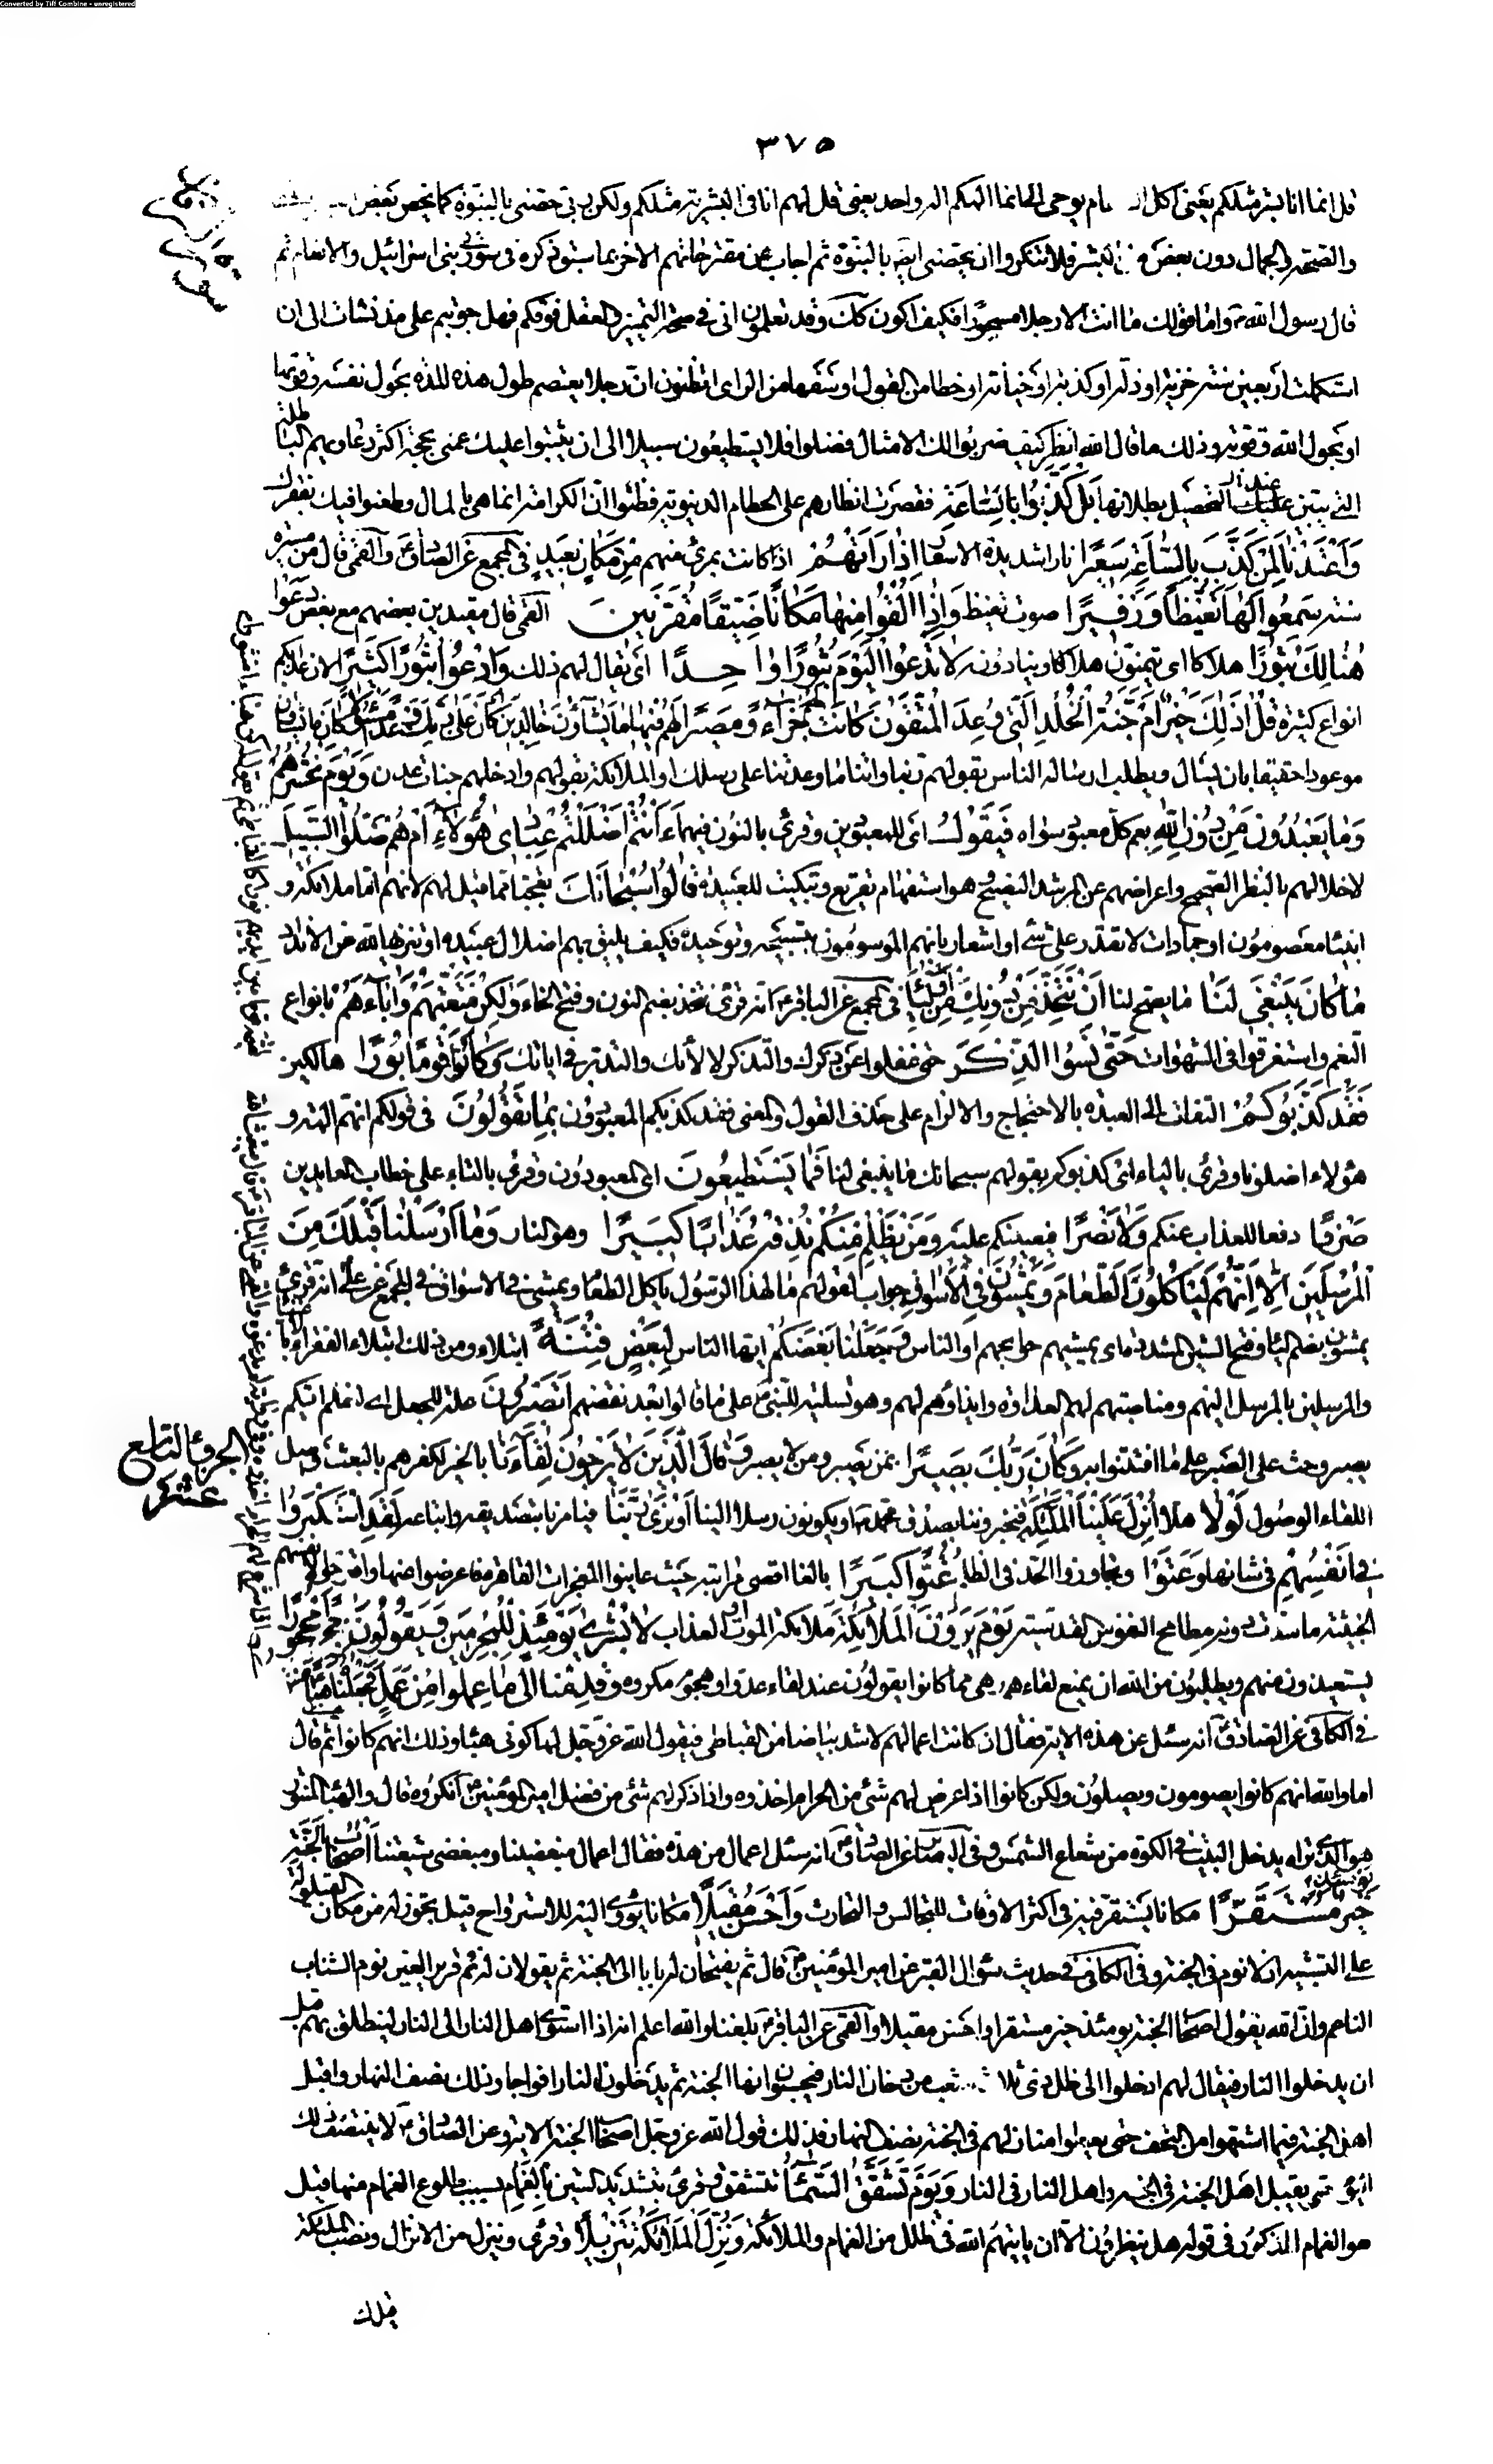 Converted by Tiff Combine - unregistered
٣٧٥
قل انما انا بشر مثلكم يعنى اكل الطعام يوحى الى انما الهكم اله واحد يعنى قل لهم انا فى البشرية مثلكم ولكن ربى خصنى بالنبوة كما يخص بعض
والصحة والجمال دون بعض من البشر فلا تنكروا ان يخصنى ايضا بالنبوة ثم اجاب عن مقترحاتهم الاخر بما سبق ذكره فى سورتى بنى اسرائيل والانعام ثم
قال رسول الله واما قولك ما انت الا رجلا مسحورا فكيف اكون كك وقد تعلمون انى فى صحة التميز والعقل فوقكم فهل جربتم على مذ نشات الى ان
استكملت اربعين سنة خزية او ذلة او كذبة او خيانة او خطأ من القول او سفها من الراى اتظنون ان رجلا يعتصم طول هذه المدة بحول نفسه وقوتها
او بحول الله وقوته وذلك ما قال الله انظر كيف ضربوا لك الامثال فضلوا فلا يستطيعون سبيلا الى ان يثبتوا عليك عمى بحجة اكثر دعاويهم الباطلة
التى يبين عليك عند التحصيل بطلانها بَلْ كَذَّبُوا بِالسَّاعَةِ فقصرت انظارهم على الحطام الدنيوية فظنوا ان الكرامة انما هى بالمال وطعنوا فيك بفقرك
وَأَعْتَدْنَا لِمَنْ كَذَّبَ بِالسَّاعَةِ سَعِيرًا نارا شديدة الاسعار إِذَا رَأَتْهُمْ اذا كانت بمرئ منهم مِنْ مَكَانٍ بَعِيدٍ فى المجمع عن الصادق والقمى قال من مسيرة
سنة سَمِعُوا لَهَا تَغَيُّظًا وَزَفِيرًا صوت تغيظ وَإِذَا أُلْقُوا مِنْهَا مَكَانًا ضَيِّقًا مُقَرَّنِينَ القمى قال مقيدين بعضهم مع بعض دَعَوْا
هُنَالِكَ ثُبُورًا هلاكا اى يتمنون هلاكا وينادونه لَا تَدْعُوا الْيَوْمَ ثُبُورًا وَاحِدًا اى يقال لهم ذلك وَادْعُوا ثُبُورًا كَثِيرًا لان عذابكم
انواع كثيرة قُلْ أَذَلِكَ خَيْرٌ أَمْ جَنَّةُ الْخُلْدِ الَّتِي وُعِدَ الْمُتَّقُونَ كَانَتْ لَهُمْ جَزَاءً وَمَصِيرًا لَهُمْ فِيهَا مَا يَشَاؤُنَ خَالِدِينَ كَانَ عَلَى رَبِّكَ وَعْدًا مَسْئُولًا كان ما يشاؤن
موعودا حقيقا بان يسال ويطلب او ساله الناس بقولهم ربنا واتنا ما وعدتنا على رسلك او الملائكة بقولهم وادخلهم جنات عدن وَيَوْمَ نَحْشُرُهُمْ
وَمَا يَعْبُدُونَ مِنْ دُونِ اللَّهِ يعم كل معبود سواه فَيَقُولُ اى للمعبودين وقرئ بالنون فيهما ءَأَنْتُمْ أَضْلَلْتُمْ عِبَادِى هَؤُلَاءِ أَمْ هُمْ ضَلُّوا السَّبِيلَ
لاخلالهم بالنظر الصحيح واعراضهم عن المرشد النصيح وهو استفهام تقريع وتبكيت للعبدة قَالُوا سُبْحَانَكَ تعجبا مما قيل لهم لانهم اما ملائكة او
انبياء معصومون او جمادات لا تقدر على شئ او اشعار بانهم الموسومون بتسبيحه وتوحيده فكيف يليق بهم اضلال عبيده او تنزيها لله عن الانداد
مَا كَانَ يَنْبَغِي لَنَا ما يصح لنا أَنْ نَتَّخِذَ مِنْ دُونِكَ مِنْ أَوْلِيَاءَ فى المجمع عن الباقر انه قرئ نتخذ بضم النون وفتح الخاء وَلَكِنْ مَتَّعْتَهُمْ وَآبَاءَهُمْ بانواع
النعم واستغرقوا فى الشهوات حَتَّى نَسُوا الذِّكْرَ حتى غفلوا عن ذكرك والتذكر لالائك والتدبر فى اياتك وَكَانُوا قَوْمًا بُورًا هالكين
فَقَدْ كَذَّبُوكُمْ التفات الى العبدة بالاحتجاج والالزام على حذف القول والمعنى فقد كذبكم المعبودون بِمَا تَقُولُونَ فى قولكم انهم الهة او
هؤلاء اضلونا وقرئ بالياء اى كذبوكم بقولهم سبحانك ما ينبغى لنا فَمَا يَسْتَطِيعُونَ اى المعبودون وقرئ بالتاء على خطاب العابدين
صَرْفًا دفعا للعذاب عنكم وَلَا نَصْرًا فيعينكم عليه وَمَنْ يَظْلِمْ مِنْكُمْ نُذِقْهُ عَذَابًا كَبِيرًا وهو النار وَمَا أَرْسَلْنَا قَبْلَكَ مِنَ
الْمُرْسَلِينَ إِلَّا إِنَّهُمْ لَيَأْكُلُونَ الطَّعَامَ وَيَمْشُونَ فِي الْأَسْوَاقِ جواب لقولهم ما لهذا الرسول ياكل الطعام ويمشى فى الاسواق فى المجمع عن على انه قرئ
يمشون بضم الياء وفتح الشين المشددة اى يمشيهم حوائجهم او الناس وَجَعَلْنَا بَعْضَكُمْ ايها الناس لِبَعْضٍ فِتْنَةً ابتلاء ومن ذلك ابتلاء الفقراء بالاغنياء
والمرسلين بالمرسل اليهم ومناصبتهم لهم العداوة وايذاؤهم لهم وهو تسلية للنبى على ما قالوا بعد نقضهم أَتَصْبِرُونَ علة للجعل اى لنعلم ايكم
يصبر وحث على الصبر على ما افتتنوا به وَكَانَ رَبُّكَ بَصِيرًا بمن يصبر ومن لا يصبر وَقَالَ الَّذِينَ لَا يَرْجُونَ لِقَاءَنَا بالخير لكفرهم بالبعث قيل
اللقاء الوصول لَوْلَا هلا أُنْزِلَ عَلَيْنَا الْمَلَائِكَةُ فيخبروننا بصدق محمد او يكونون رسلا الينا أَوْ نَرَى رَبَّنَا فيامرنا بتصديقه واتباعه لَقَدِ اسْتَكْبَرُوا
فِي أَنْفُسِهِمْ فى شانها وَعَتَوْا وتجاوزوا الحد فى الظلم عُتُوًّا كَبِيرًا بالغا اقصى مراتبه حيث عاينوا المعجزات القاهرة فاعرضوا عنها واقترحوا لانفسهم
الخبيثة ما سدت دونه مطامح النفوس القدسية يَوْمَ يَرَوْنَ الْمَلَائِكَةَ ملائكة الموت او العذاب لَا بُشْرَى يَوْمَئِذٍ لِلْمُجْرِمِينَ وَيَقُولُونَ حِجْرًا مَحْجُورًا
يستعيذون منهم ويطلبون من الله ان يمنع لقاءهم وهى مما كانوا يقولون عند لقاء عدو او هجوم مكروه وَقَدِمْنَا إِلَى مَا عَمِلُوا مِنْ عَمَلٍ فَجَعَلْنَاهُ هَبَاءً مَنْثُورًا
فى الكافى عن الصادق انه سئل عن هذه الاية فقال ان كانت اعمالهم لاشد بياضا من القباطى فيقول الله عز وجل لها كونى هباء وذلك انهم كانوا ثم قال
اما والله انهم كانوا يصومون ويصلون ولكن كانوا اذا عرض لهم شئ من الحرام اخذوه واذا ذكر لهم شئ من فضل امير المؤمنين انكروه قال والهباء المنثور
هو الذى تراه يدخل البيت فى الكوة من شعاع الشمس وفى البصائر عن الصادق انه سئل اعمال من هذه فقال اعمال مبغضينا ومبغضى شيعتنا أَصْحَابُ الْجَنَّةِ يَوْمَئِذٍ
خَيْرٌ مُسْتَقَرًّا مكانا يستقر فيه فى اكثر الاوقات للتجالس والتحادث وَأَحْسَنُ مَقِيلًا مكانا يؤوى اليه للاسترواح قيل تجوز له من مكان القيلولة
على التشبيه اذ لا نوم فى الجنة وفى الكافى فى حديث سؤال القبر عن امير المؤمنين قال ثم يفتحان له بابا الى الجنة ثم يقولان له نم قرير العين نوم الشاب
الناعم وان الله يقول اصحاب الجنة يومئذ خير مستقرا واحسن مقيلا والقمى عن الباقر بلغنا والله اعلم انه اذا استوى اهل النار الى النار لينطلق بهم قبل
ان يدخلوا النار فيقال لهم ادخلوا الى ظل ذى ثلاث شعب من دخان النار فيحسبون انها الجنة ثم يدخلون النار افواجا وذلك نصف النهار واقبل
اهل الجنة فيما اشتهوا من التحف حتى يعطوا منازلهم فى الجنة نصف النهار فذلك قول الله عز وجل اصحاب الجنة الاية وعن الصادق لا ينتصف ذلك
اليوم حتى يقيل اهل الجنة فى الجنة واهل النار فى النار وَيَوْمَ تَشَقَّقُ السَّمَاءُ تتشقق وقرئ بتشديد الشين بِالْغَمَامِ بسبب طلوع الغمام منها قيل
هو الغمام المذكور فى قوله هل ينظرون الا ان ياتيهم الله فى ظلل من الغمام والملائكة وَنُزِّلَ الْمَلَائِكَةُ تَنْزِيلًا وقرئ وننزل من الانزال ونصب الملائكة
الجزء التاسع
عشر